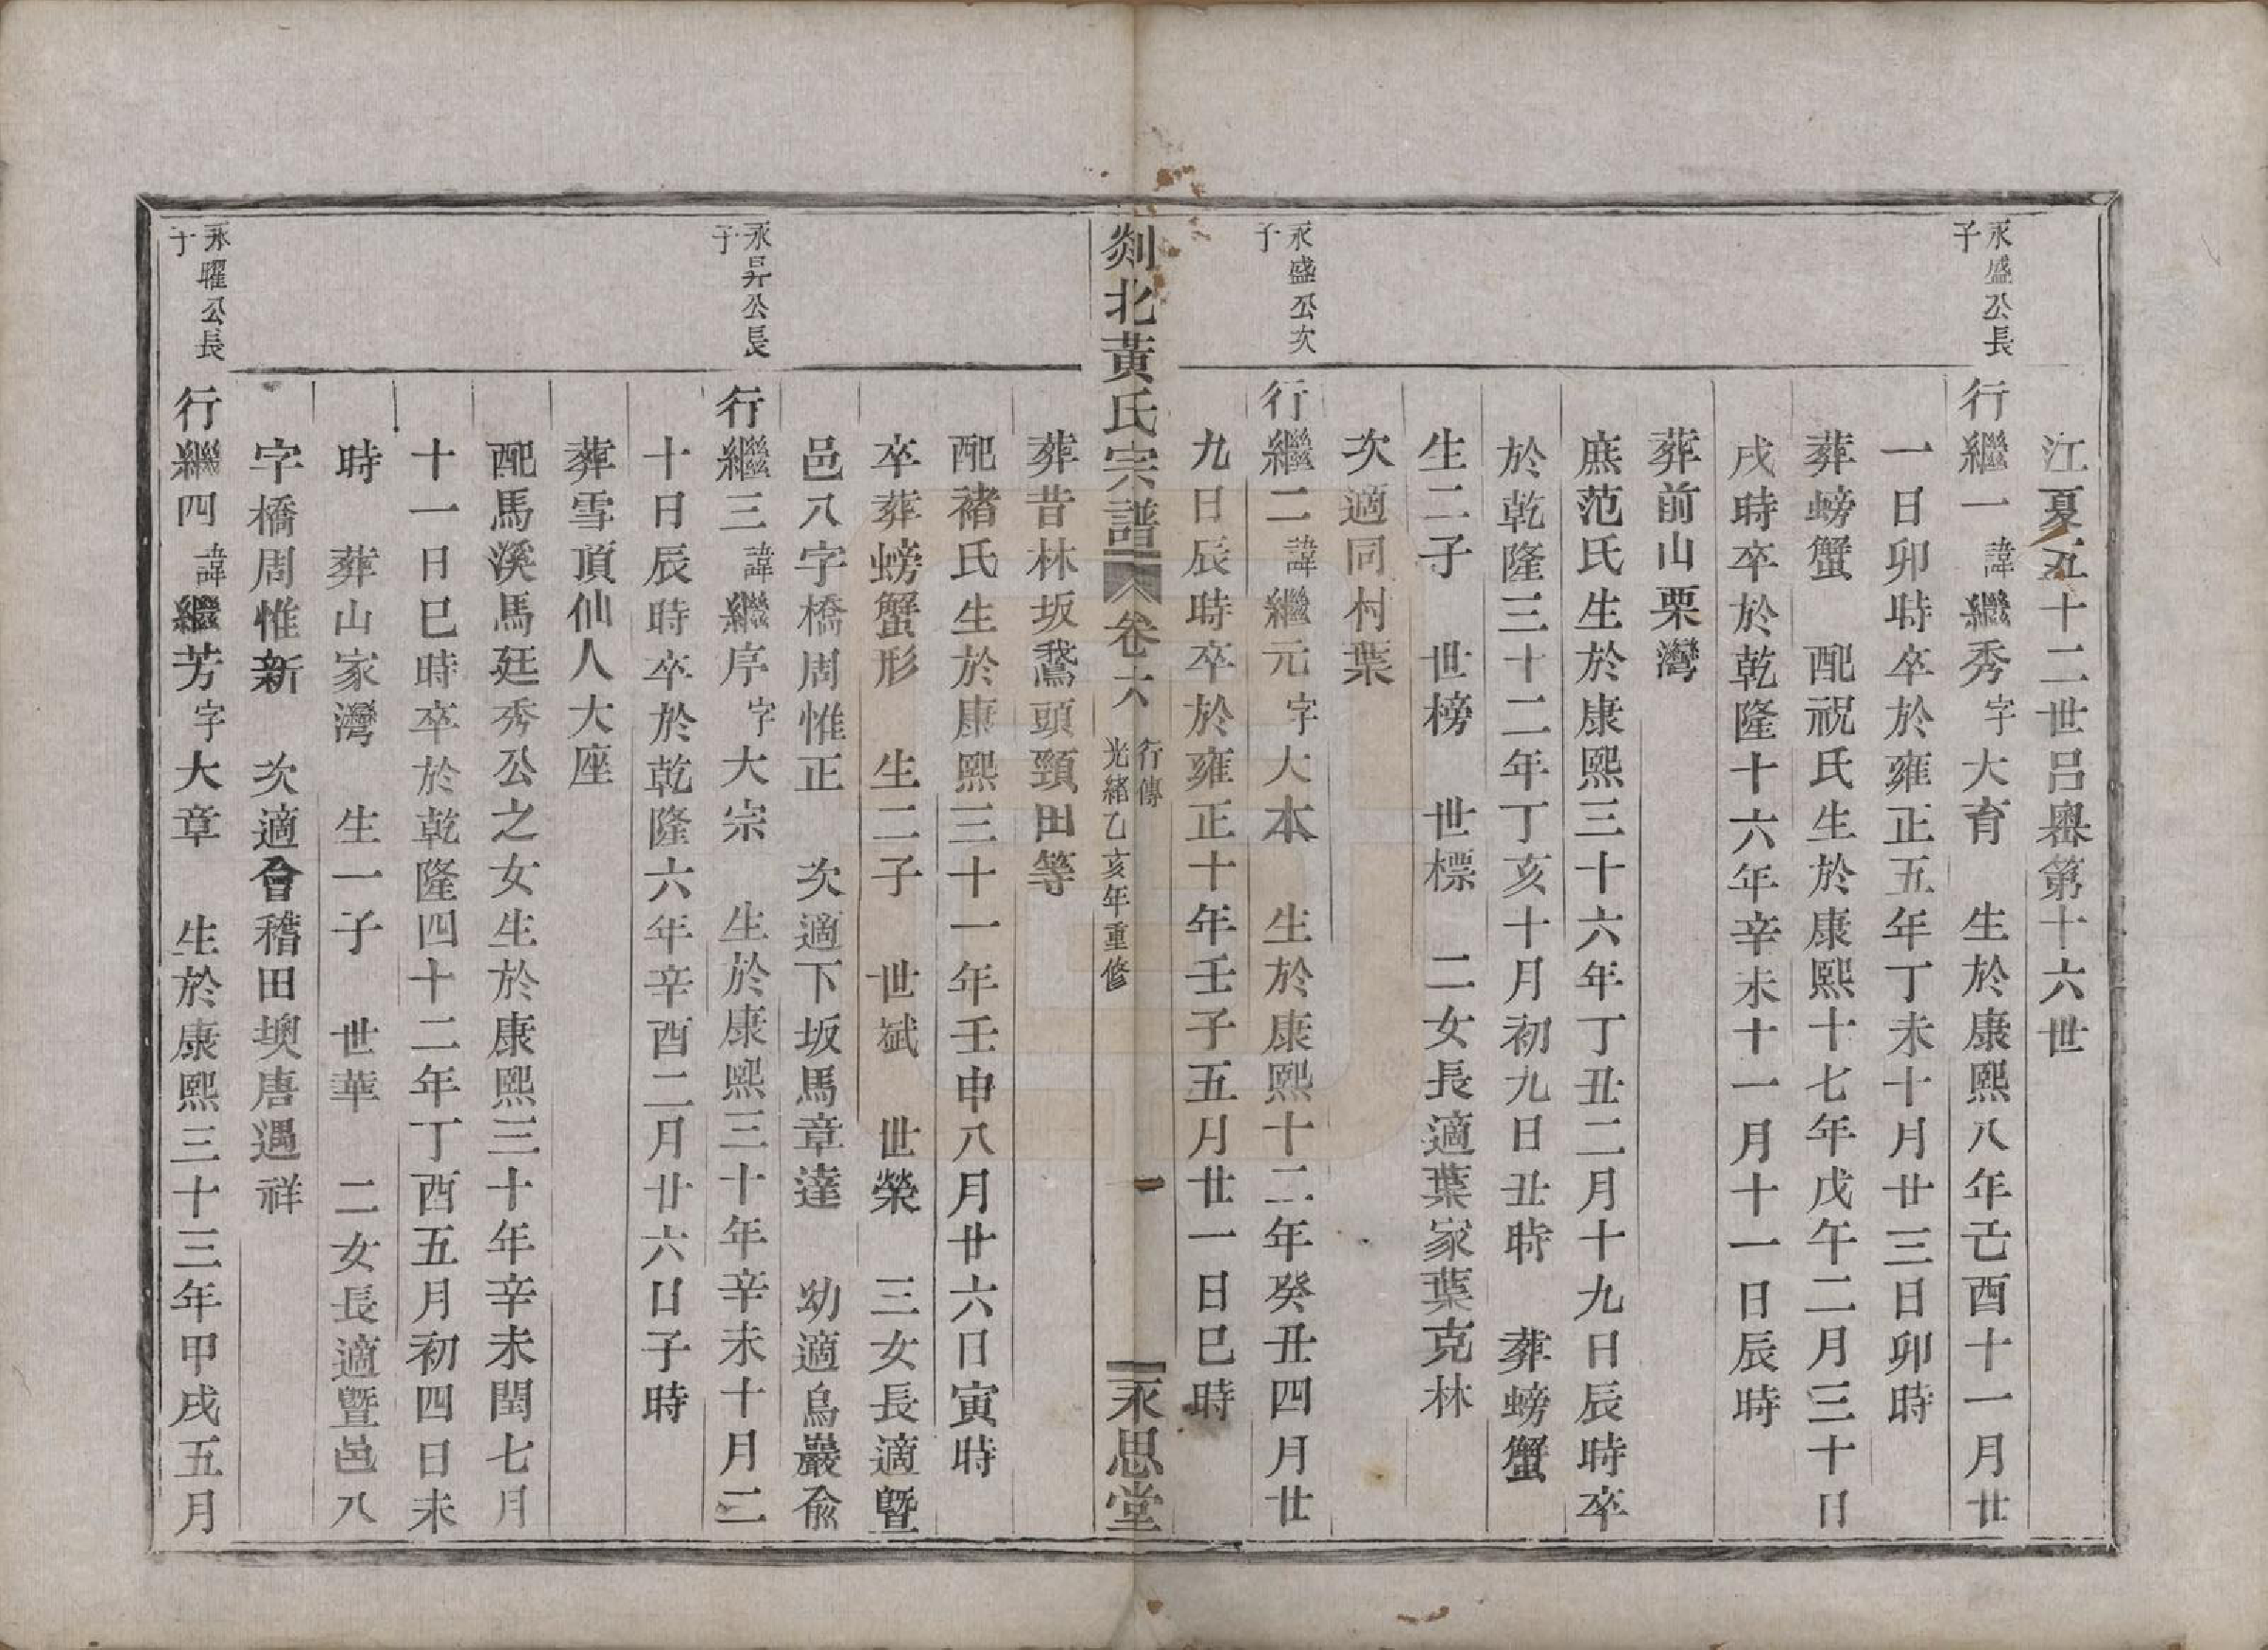 江夏五十二世呂粵第十六世
永盛公長子
行繼一諱繼秀字大育 生於康熙八年己酉十一月廿
一日卯時卒於雍正五年丁未十月廿三日卯時
葬螃蟹 配祝氏生於康熙十七年戊午二月三十日
戌時卒於乾隆十六年辛未十一月十一日辰時
葬前山栗灣
庶范氏生於康熙三十六年丁丑二月十九日辰時卒
於乾隆三十二年丁亥十月初九日丑時 葬螃蟹
生二子 世榜 世標 二女長適葉家葉克林
次適同村葉
永盛公次子
行繼二諱繼元字大本 生於康熙十二年癸丑四月廿
九日辰時卒於雍正十年壬子五月廿一日巳時
剡北黃氏宗譜 卷六 行傳 光緒乙亥年重修 一 永思堂
葬昔林坂鵞頭頸田等
配褚氏生於康熙三十一年壬申八月廿六日寅時
卒葬螃蟹形 生二子 世斌 世榮 三女長適暨
邑八字橋周惟正 次適下坂馬章達 幼適烏巖俞
永昇公長子
行繼三諱繼序字大宗 生於康熙三十年辛未十月二
十日辰時卒於乾隆六年辛酉二月廿六日子時
葬雪頂仙人大座
配馬溪馬廷秀公之女生於康熙三十年辛未閏七月
十一日巳時卒於乾隆四十二年丁酉五月初四日未
時 葬山家灣 生一子 世華 二女長適暨邑八
字橋周惟新 次適會稽田墺唐遇祥
永曜公長子
行繼四諱繼芳字大章 生於康熙三十三年甲戌五月